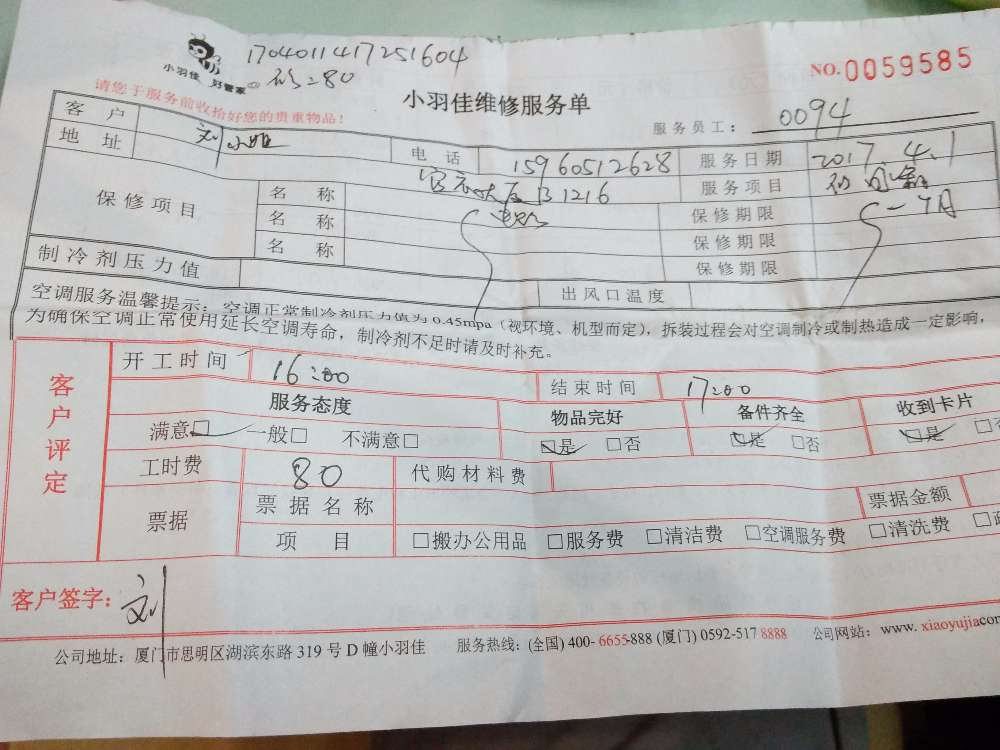 1704011417251604
小羽佳 好管家
=80
NO.0059585
请您于服务前收拾好您的贵重物品!
小羽佳维修服务单
服务员工: 0094
客户 刘小姐 电话 15960512628 服务日期 2017.4.1
地址 B1216 服务项目
保修项目 名称 保修期限 一个月
名称 保修期限
名称 保修期限
制冷剂压力值 出风口温度
空调服务温馨提示:空调正常制冷剂压力值为0.45mpa(视环境、机型而定),拆装过程会对空调制冷或制热造成一定影响,
为确保空调正常使用延长空调寿命,制冷剂不足时请及时补充。
客户评定
开工时间 16:00 结束时间 17:00
服务态度 物品完好 备件齐全 收到卡片
满意□ 一般□ 不满意□ □是 □否 □是 □否 □是 □否
工时费 80 代购材料费
票据 票据名称 票据金额
项目 □搬办公用品 □服务费 □清洁费 □空调服务费 □清洗费
客户签字: 刘
公司地址:厦门市思明区湖滨东路319号D幢小羽佳 服务热线:(全国)400-6655-888(厦门)0592-5178888 公司网站:www.xiaoyujiacom